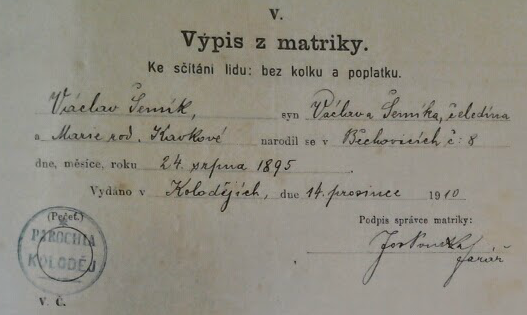 V.
Výpis z matriky.
Ke sčítání lidu: bez kolku a poplatku.
Václav Semík, syn Václava Semíka, čeledína
a Marie rod. Kavkové narodil se v Běchovicích, č. 8
dne, měsíce, roku 24. srpna 1895
Vydáno v Kolodějích, dne 14. prosince 1910
(Pečeť.)
Podpis správce matriky:
PAROCHIA
KOLODĚJ
farář
V. Č.